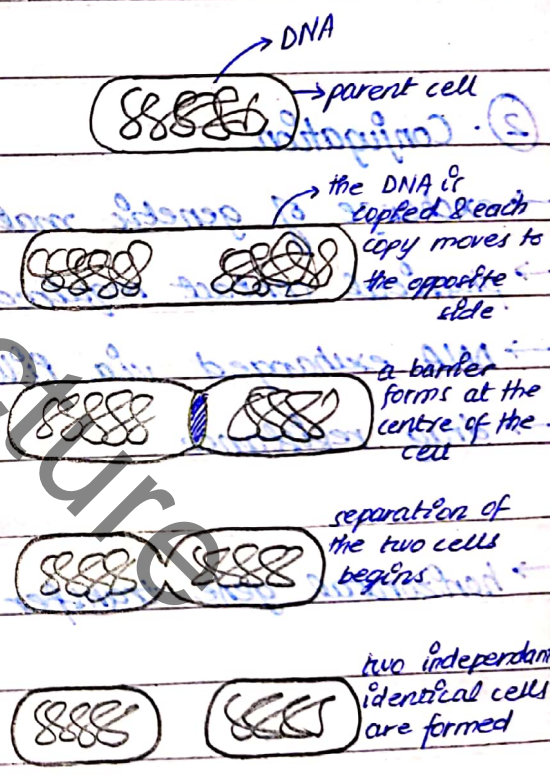 DNA
parent cell
② · Conjugation
the DNA is
copied & each
copy moves to
the opposite
side ·
a barrier
forms at the
centre of the
cell
separation of
the two cells
begins
two independant
identical cells
are formed
cture